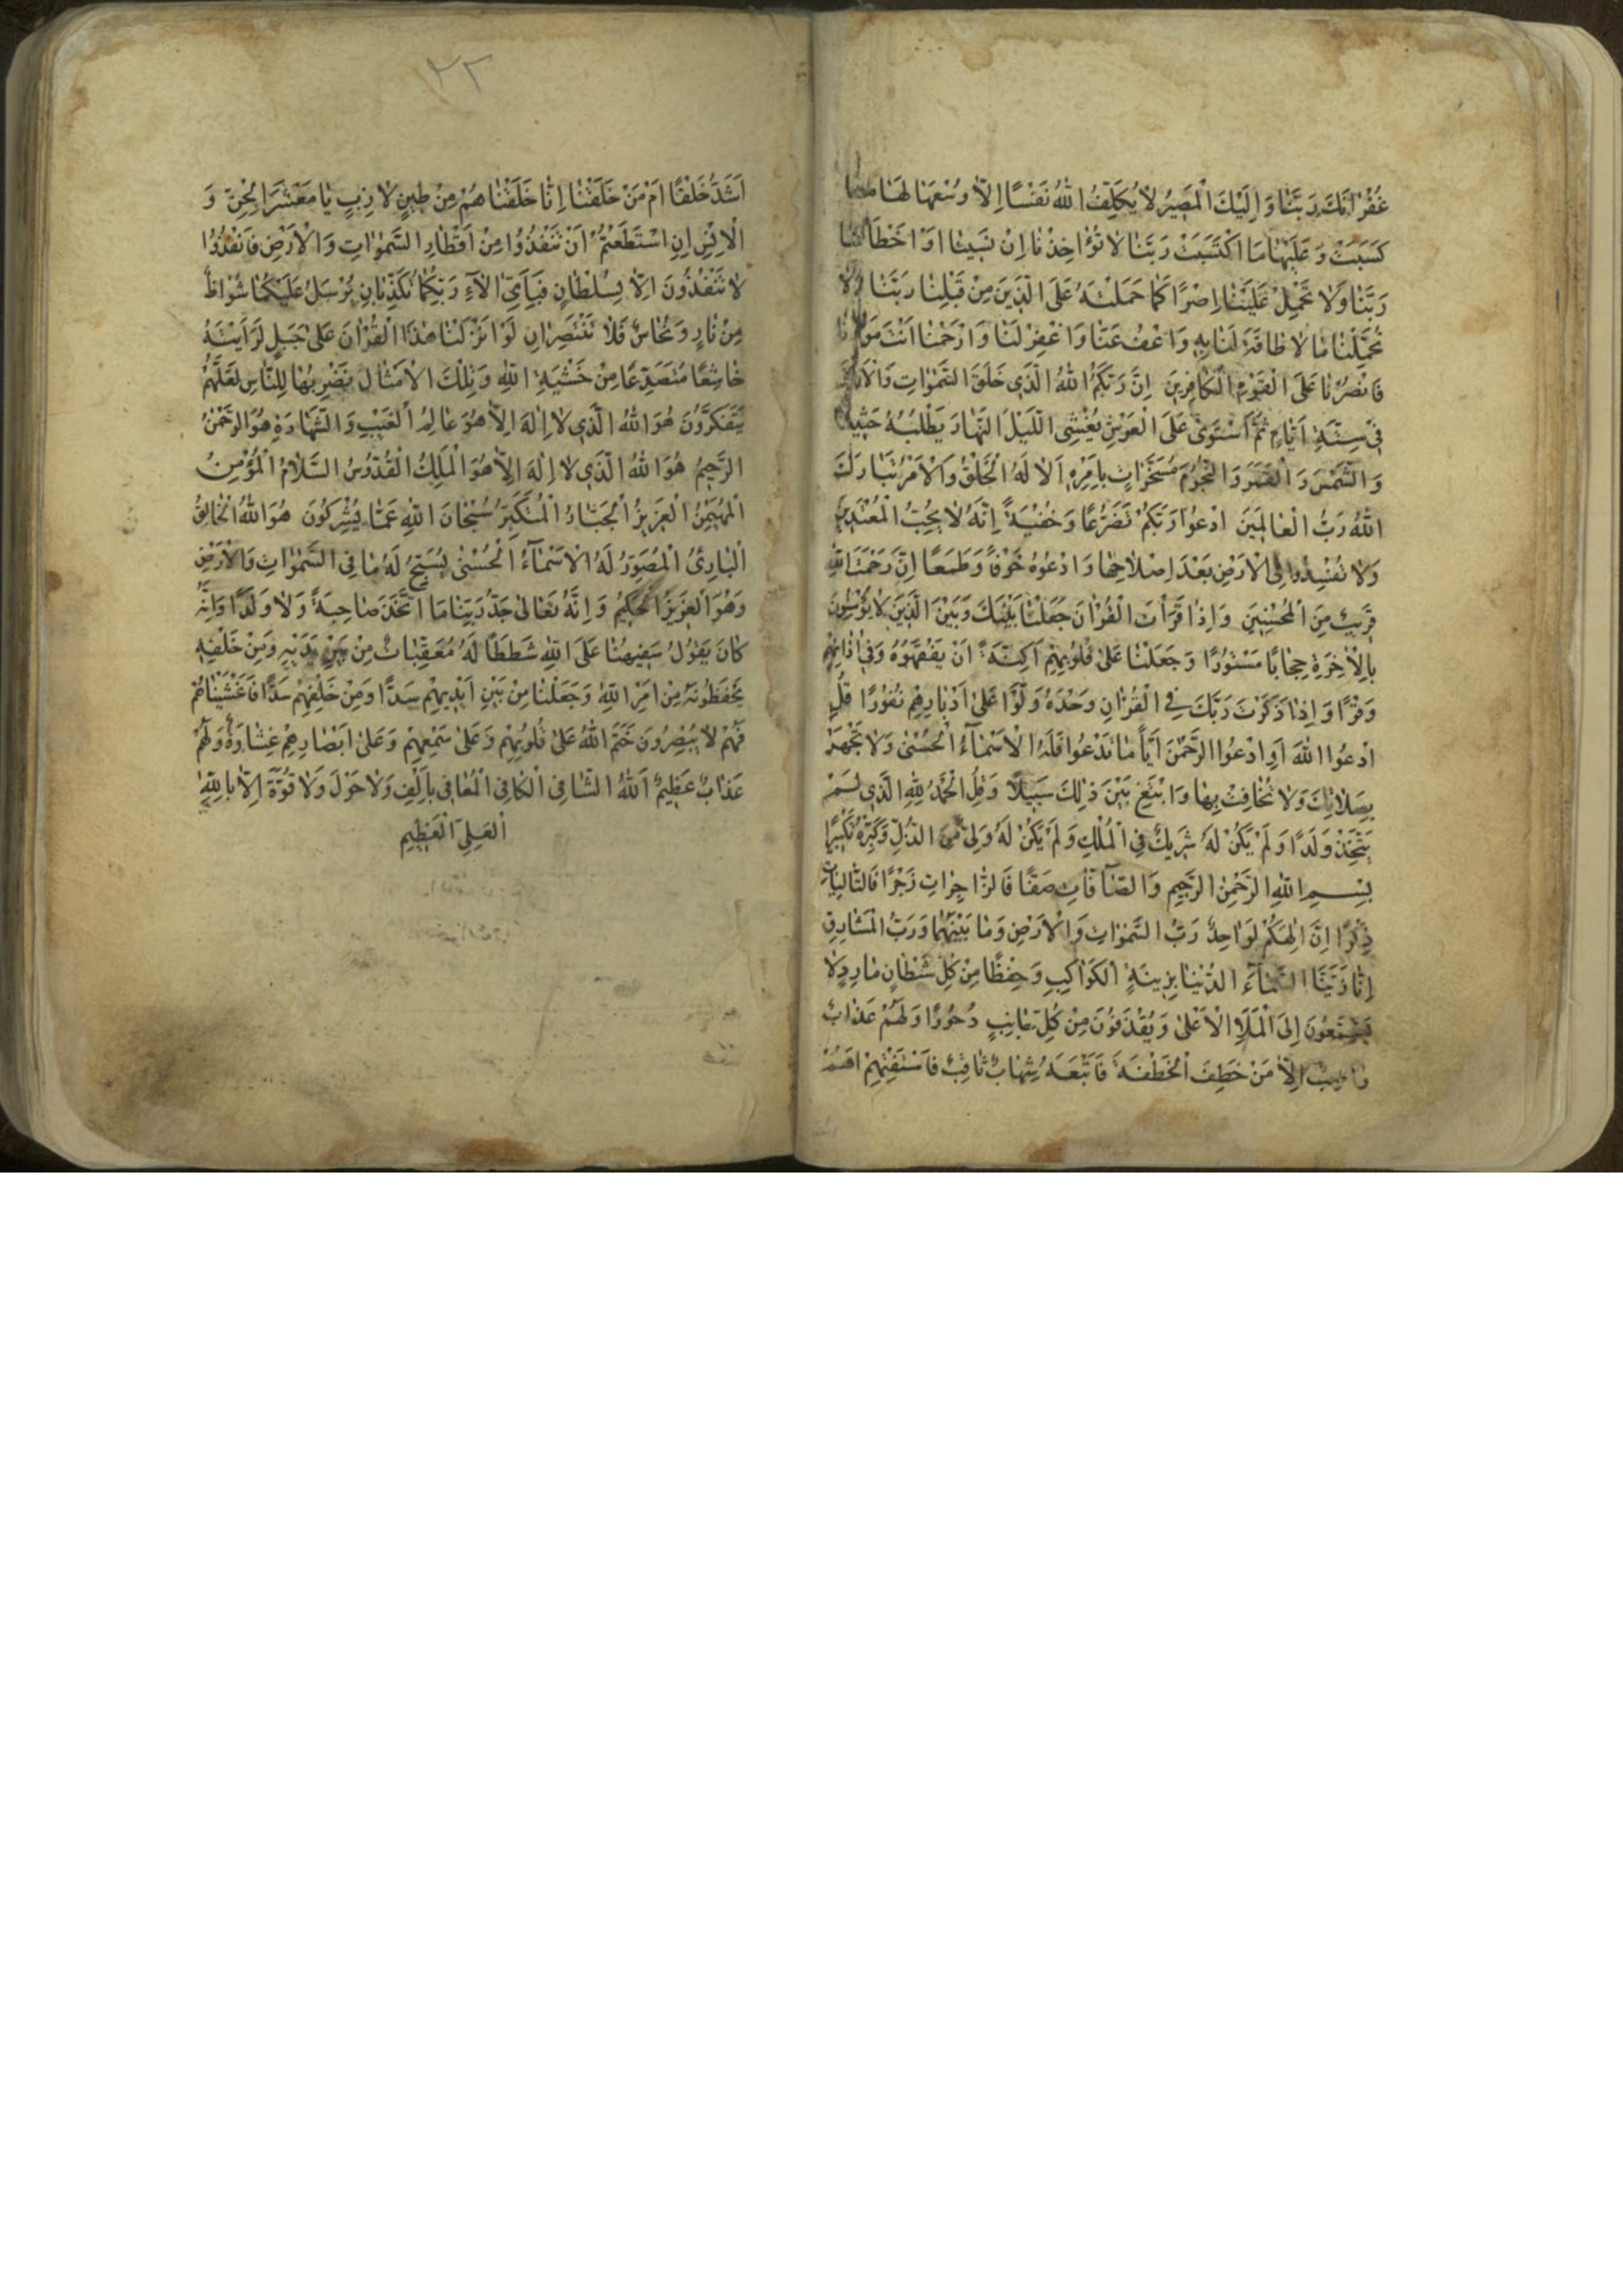 غُفْرَانَكَ رَبَّنَا وَاِلَيْكَ الْمَصِيرُ لَا يُكَلِّفُ اللهُ نَفْسًا اِلَّا وُسْعَهَا لَهَا مَا
كَسَبَتْ وَعَلَيْهَا مَا اكْتَسَبَتْ رَبَّنَا لَا تُؤَاخِذْنَا اِنْ نَسِينَا اَوْ اَخْطَأْنَا
رَبَّنَا وَلَا تَحْمِلْ عَلَيْنَا اِصْرًا كَمَا حَمَلْتَهُ عَلَى الَّذِينَ مِنْ قَبْلِنَا رَبَّنَا وَلَا
تُحَمِّلْنَا مَا لَا طَاقَةَ لَنَا بِهِ وَاعْفُ عَنَّا وَاغْفِرْ لَنَا وَارْحَمْنَا اَنْتَ مَوْلَانَا
فَانْصُرْنَا عَلَى الْقَوْمِ الْكَافِرِينَ اِنَّ رَبَّكُمُ اللهُ الَّذِي خَلَقَ السَّمٰوَاتِ وَالْاَرْضَ
فِي سِتَّةِ اَيَّامٍ ثُمَّ اسْتَوَى عَلَى الْعَرْشِ يُغْشِي اللَّيْلَ النَّهَارَ يَطْلُبُهُ حَثِيثًا
وَالشَّمْسَ وَالْقَمَرَ وَالنُّجُومَ مُسَخَّرَاتٍ بِاَمْرِهِ اَلَا لَهُ الْخَلْقُ وَالْاَمْرُ تَبَارَكَ
اللهُ رَبُّ الْعَالَمِينَ ادْعُوا رَبَّكُمْ تَضَرُّعًا وَخُفْيَةً اِنَّهُ لَا يُحِبُّ الْمُعْتَدِينَ
وَلَا تُفْسِدُوا فِي الْاَرْضِ بَعْدَ اِصْلَاحِهَا وَادْعُوهُ خَوْفًا وَطَمَعًا اِنَّ رَحْمَتَ اللهِ
قَرِيبٌ مِنَ الْمُحْسِنِينَ وَاِذَا قَرَاْتَ الْقُرْاٰنَ جَعَلْنَا بَيْنَكَ وَبَيْنَ الَّذِينَ لَا يُؤْمِنُونَ
بِالْاٰخِرَةِ حِجَابًا مَسْتُورًا وَجَعَلْنَا عَلَى قُلُوبِهِمْ اَكِنَّةً اَنْ يَفْقَهُوهُ وَفِي اٰذَانِهِمْ
وَقْرًا وَاِذَا ذَكَرْتَ رَبَّكَ فِي الْقُرْاٰنِ وَحْدَهُ وَلَّوْا عَلَى اَدْبَارِهِمْ نُفُورًا قُلِ
ادْعُوا اللهَ اَوِ ادْعُوا الرَّحْمٰنَ اَيًّا مَا تَدْعُوا فَلَهُ الْاَسْمَاءُ الْحُسْنَى وَلَا تَجْهَرْ
بِصَلَاتِكَ وَلَا تُخَافِتْ بِهَا وَابْتَغِ بَيْنَ ذٰلِكَ سَبِيلًا وَقُلِ الْحَمْدُ لِلّٰهِ الَّذِي لَمْ
يَتَّخِذْ وَلَدًا وَلَمْ يَكُنْ لَهُ شَرِيكٌ فِي الْمُلْكِ وَلَمْ يَكُنْ لَهُ وَلِيٌّ مِنَ الذُّلِّ وَكَبِّرْهُ تَكْبِيرًا
بِسْمِ اللهِ الرَّحْمٰنِ الرَّحِيمِ وَالصَّافَّاتِ صَفًّا فَالزَّاجِرَاتِ زَجْرًا فَالتَّالِيَاتِ
ذِكْرًا اِنَّ اِلٰهَكُمْ لَوَاحِدٌ رَبُّ السَّمٰوَاتِ وَالْاَرْضِ وَمَا بَيْنَهُمَا وَرَبُّ الْمَشَارِقِ
اِنَّا زَيَّنَّا السَّمَاءَ الدُّنْيَا بِزِينَةٍ الْكَوَاكِبِ وَحِفْظًا مِنْ كُلِّ شَيْطَانٍ مَارِدٍ لَا
يَسَّمَّعُونَ اِلَى الْمَلَاِ الْاَعْلَى وَيُقْذَفُونَ مِنْ كُلِّ جَانِبٍ دُحُورًا وَلَهُمْ عَذَابٌ
وَاصِبٌ اِلَّا مَنْ خَطِفَ الْخَطْفَةَ فَاَتْبَعَهُ شِهَابٌ ثَاقِبٌ فَاسْتَفْتِهِمْ اَهُمْ
٢٢
اَشَدُّ خَلْقًا اَمْ مَنْ خَلَقْنَا اِنَّا خَلَقْنَاهُمْ مِنْ طِينٍ لَازِبٍ يَا مَعْشَرَ الْجِنِّ وَ
الْاِنْسِ اِنِ اسْتَطَعْتُمْ اَنْ تَنْفُذُوا مِنْ اَقْطَارِ السَّمٰوَاتِ وَالْاَرْضِ فَانْفُذُوا
لَا تَنْفُذُونَ اِلَّا بِسُلْطَانٍ فَبِاَيِّ اٰلَاءِ رَبِّكُمَا تُكَذِّبَانِ يُرْسَلُ عَلَيْكُمَا شُوَاظٌ
مِنْ نَارٍ وَنُحَاسٌ فَلَا تَنْتَصِرَانِ لَوْ اَنْزَلْنَا هٰذَا الْقُرْاٰنَ عَلَى جَبَلٍ لَرَاَيْتَهُ
خَاشِعًا مُتَصَدِّعًا مِنْ خَشْيَةِ اللهِ وَتِلْكَ الْاَمْثَالُ نَضْرِبُهَا لِلنَّاسِ لَعَلَّهُمْ
يَتَفَكَّرُونَ هُوَ اللهُ الَّذِي لَا اِلٰهَ اِلَّا هُوَ عَالِمُ الْغَيْبِ وَالشَّهَادَةِ هُوَ الرَّحْمٰنُ
الرَّحِيمُ هُوَ اللهُ الَّذِي لَا اِلٰهَ اِلَّا هُوَ الْمَلِكُ الْقُدُّوسُ السَّلَامُ الْمُؤْمِنُ
الْمُهَيْمِنُ الْعَزِيزُ الْجَبَّارُ الْمُتَكَبِّرُ سُبْحَانَ اللهِ عَمَّا يُشْرِكُونَ هُوَ اللهُ الْخَالِقُ
الْبَارِئُ الْمُصَوِّرُ لَهُ الْاَسْمَاءُ الْحُسْنَى يُسَبِّحُ لَهُ مَا فِي السَّمٰوَاتِ وَالْاَرْضِ
وَهُوَ الْعَزِيزُ الْحَكِيمُ وَاِنَّهُ تَعَالَى جَدُّ رَبِّنَا مَا اتَّخَذَ صَاحِبَةً وَلَا وَلَدًا وَاِنَّهُ
كَانَ يَقُولُ سَفِيهُنَا عَلَى اللهِ شَطَطًا لَهُ مُعَقِّبَاتٌ مِنْ بَيْنِ يَدَيْهِ وَمِنْ خَلْفِهِ
يَحْفَظُونَهُ مِنْ اَمْرِ اللهِ وَجَعَلْنَا مِنْ بَيْنِ اَيْدِيهِمْ سَدًّا وَمِنْ خَلْفِهِمْ سَدًّا فَاَغْشَيْنَاهُمْ
فَهُمْ لَا يُبْصِرُونَ خَتَمَ اللهُ عَلَى قُلُوبِهِمْ وَعَلَى سَمْعِهِمْ وَعَلَى اَبْصَارِهِمْ غِشَاوَةٌ وَلَهُمْ
عَذَابٌ عَظِيمٌ اَللهُ الشَّافِي الْكَافِي الْمُعَافِي بِاَلْفِ وَلَا حَوْلَ وَلَا قُوَّةَ اِلَّا بِاللهِ
الْعَلِيِّ الْعَظِيمِ